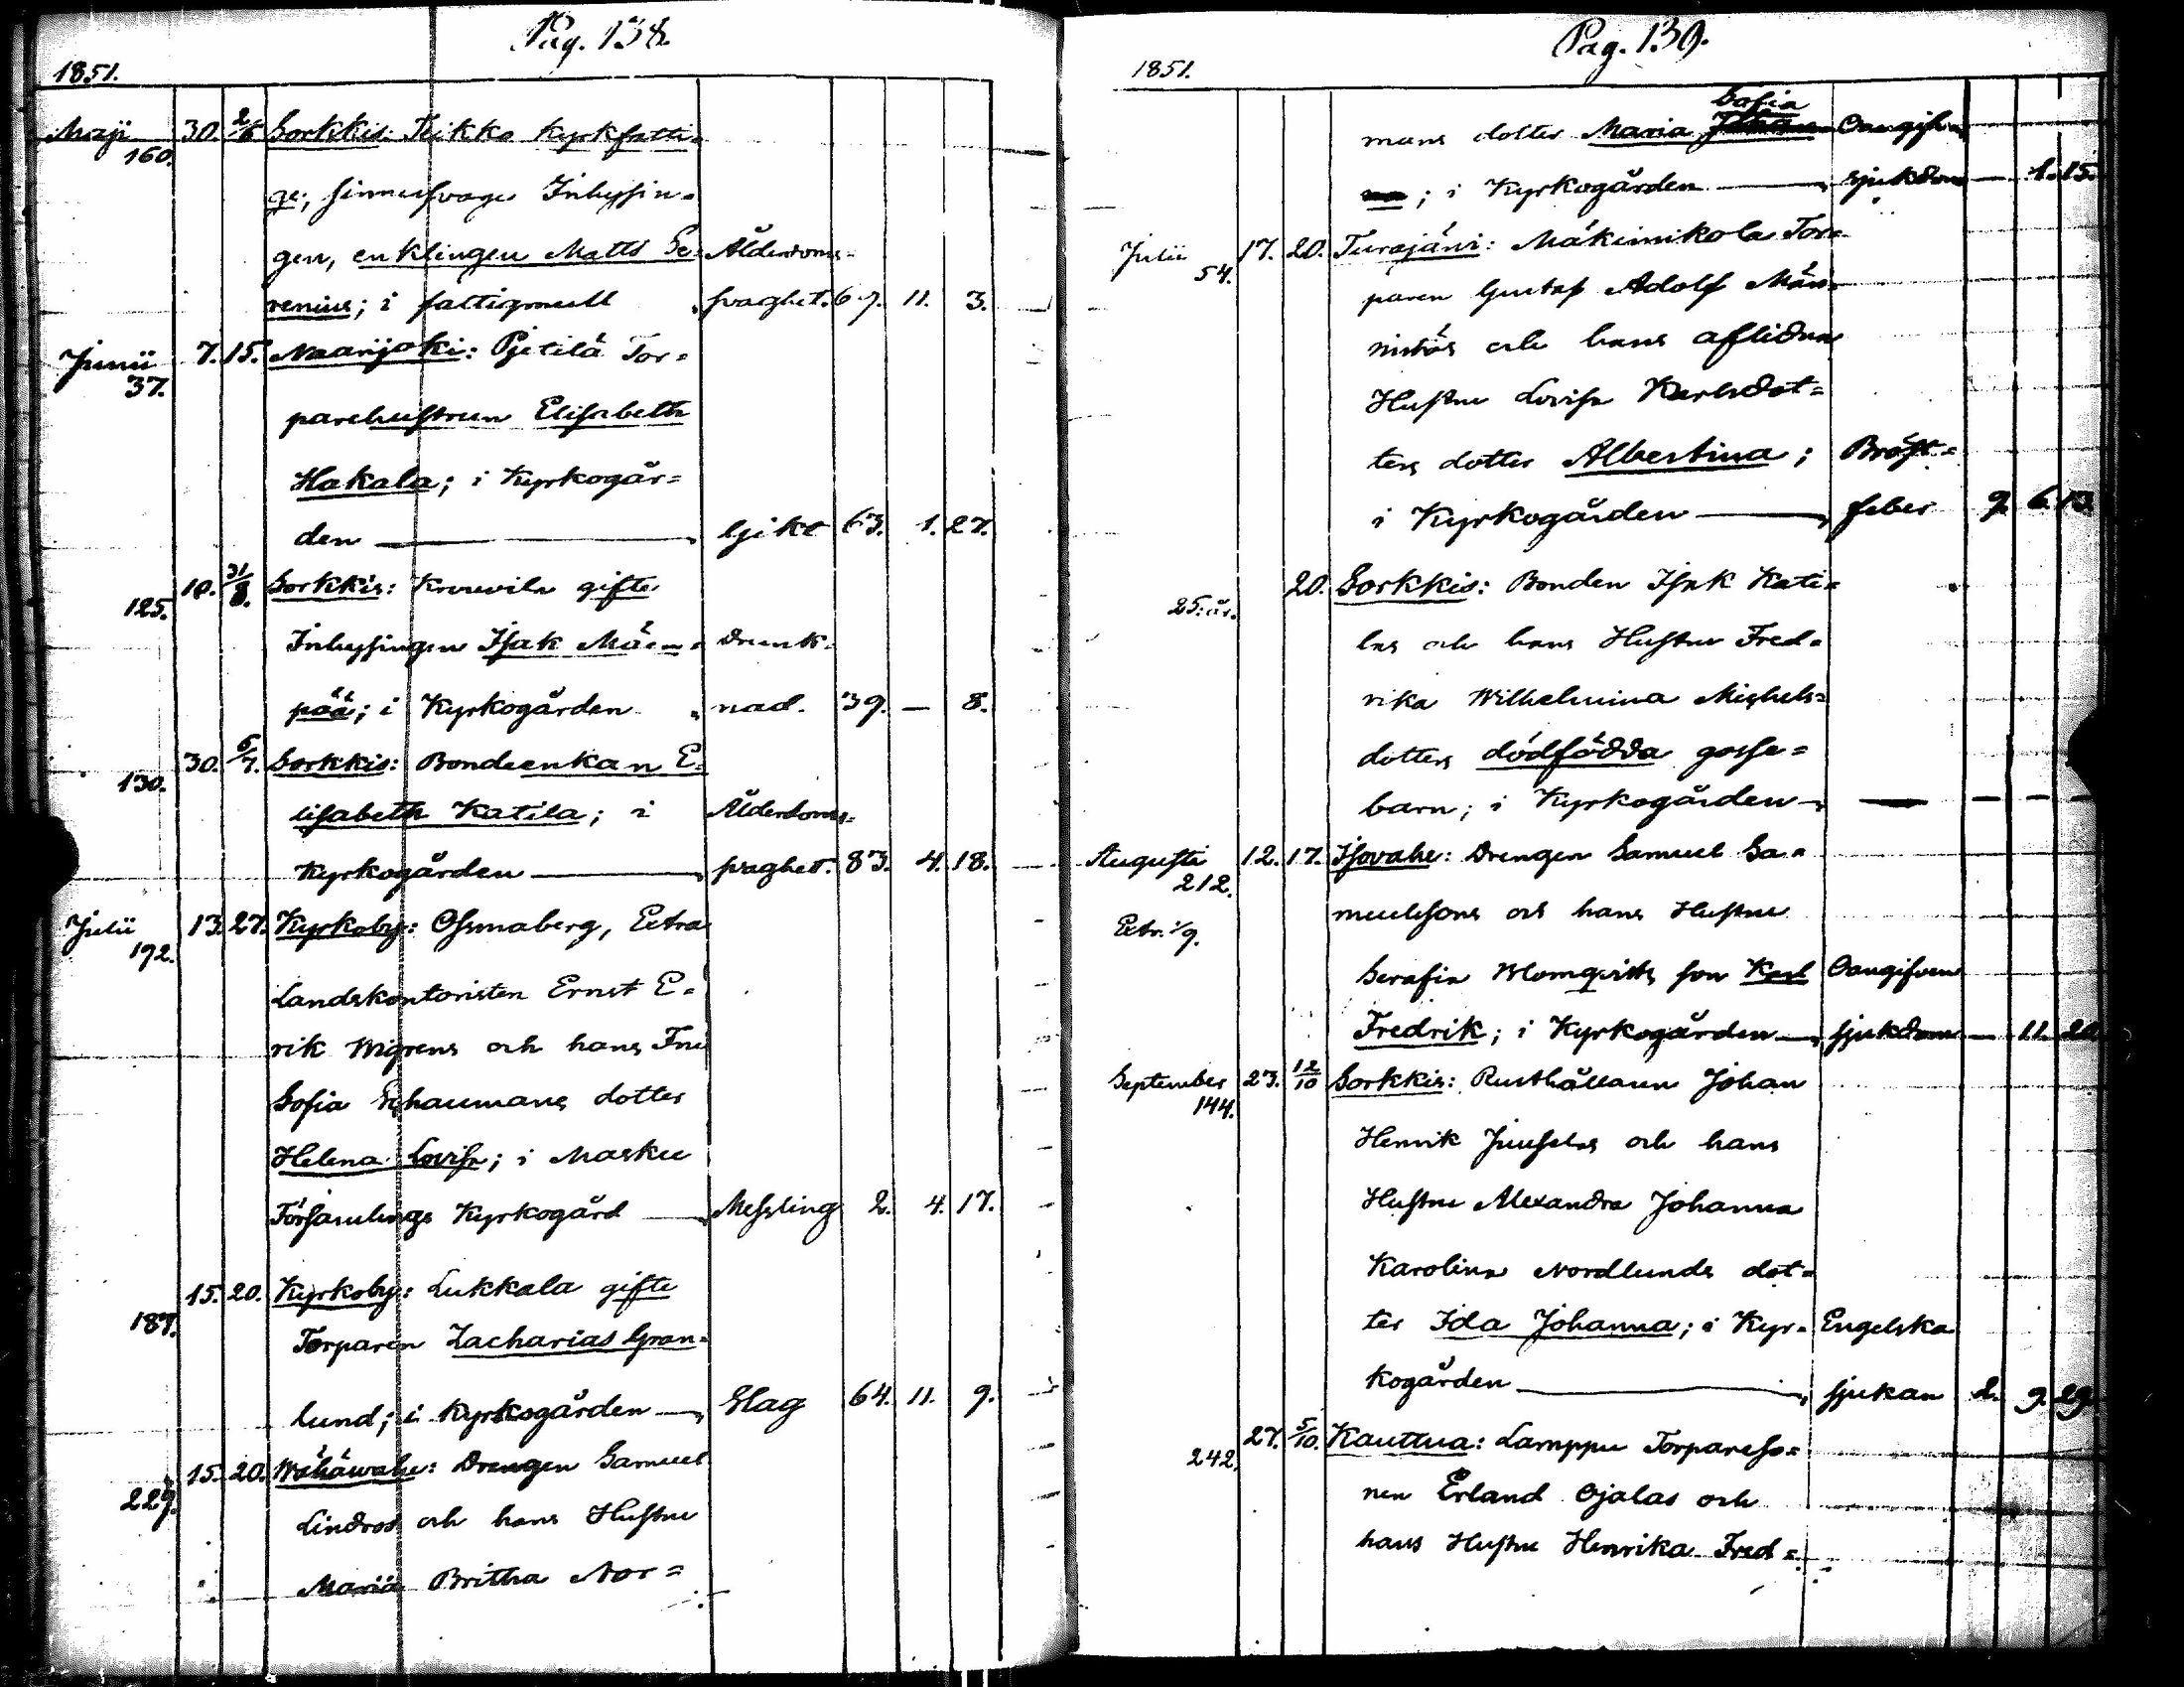 Pag. 138.
1851.
Maji 30. 2/6 Sorkkis: Teikko Kyrkfatti=
160.
ge, sinnessvage Inhysin=
gen, enklingen Matts Se= Ålderdoms=
renius; i fattigmull svaghet. 67. 11. 3.
Junii 7. 15. Naarijoki: Pjetilä Tor=
37.
parehustrun Elisabeth
Hakala; i Kyrkogår=
den Gikt 63. 1. 27.
10. 31/8. Sorkkis: Krouvila gifte
125.
Inhysingen Isak Mä= Drunk=
pää; i Kyrkogården nad. 39. — 8.
30. 6/7. Sorkkis: Bondeenkan E=
130.
lisabeth Katila; i Ålderdoms=
Kyrkogården svaghet. 83. 4. 18.
Julii 13. 27. Kyrkoby: Osmaberg, Extra
192.
Landskontoristen Ernst E=
rik Wigrens och hans Fru
Sofia Schaumans dotter
Helena Lovisa; i Masku
Församlings Kyrkogård Messling 2. 4. 17.
15. 20. Kyrkoby: Lukkala gifte
187.
Torparen Zacharias Gran=
lund; i Kyrkogården Slag 64. 11. 9.
15. 20. Wähäwahe: Drengen Samuel
229.
Lindros och hans Hustru
Maria Britha Nor=
Pag. 139.
1851.
Sofia
mans dotter Maria Oangifven
; i Kyrkogården sjukdom — 1. 15.
Julii 17. 20. Turajärvi: Mäkimikola Tor=
54.
paren Gustaf Adolf Män=
nistös och hans aflidna
Hustru Lovisa Karlsdot=
ters dotter Albertina; Bröst=
i Kyrkogården feber 9. 6. 13.
20. Sorkkis: Bonden Isak Kati=
25: år.
las och hans Hustru Fred=
rika Wilhelmina Michels=
dotters dödfödda gosse=
barn; i Kyrkogården — — — —
Augusti 12. 17. Isovahe: Drengen Samuel Sa=
212.
muelsons och hans Hustru
Extr. 1/9.
Serafia Blomqvists son Karl Oangifven
Fredrik; i Kyrkogården sjukdom — 11. 20
September 23. 12/10 Sorkkis: Rusthållaren Johan
144.
Henrik Juuselas och hans
Hustru Alexandra Johanna
Karolina Nordlunds dot=
ter Ida Johanna; i Kyr= Engelska
kogården sjukan 2. 9. 29.
27. 5/10. Kauttua: Lamppu Torpareso=
242.
nen Erland Ojalas och
hans Hustru Henrika Fred=